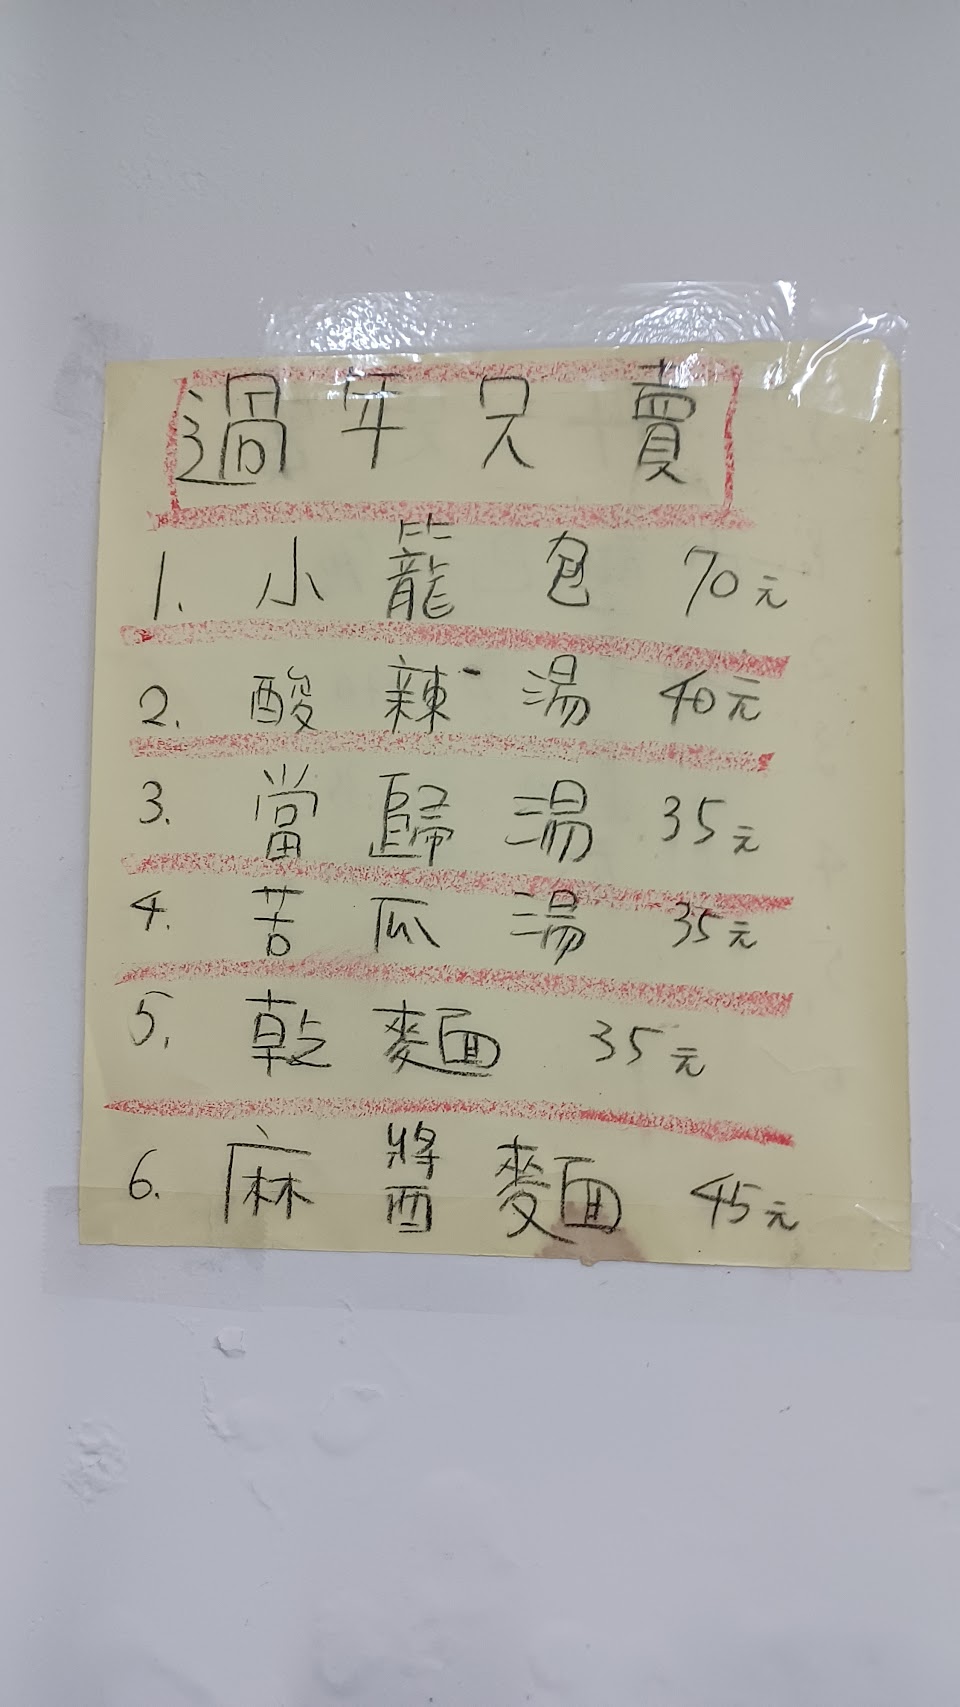 過年只賣
1. 小籠包 70元
2. 酸辣湯 40元
3. 當歸湯 35元
4. 苦瓜湯 35元
5. 乾麵 35元
6. 麻醬麵 45元